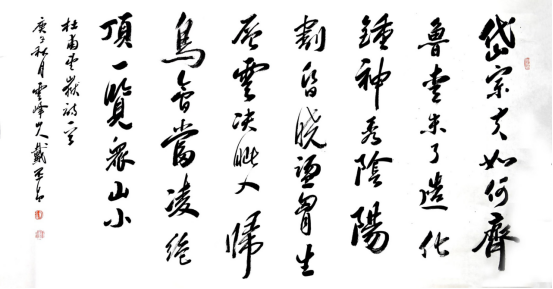 岱宗夫如何齊
魯青未了造化
鍾神秀陰陽
割昏曉盪胸生
層雲決眦入歸
鳥會當凌絕
頂一覽衆山小
杜甫望嶽詩一首
庚子秋月雲峰山人戴